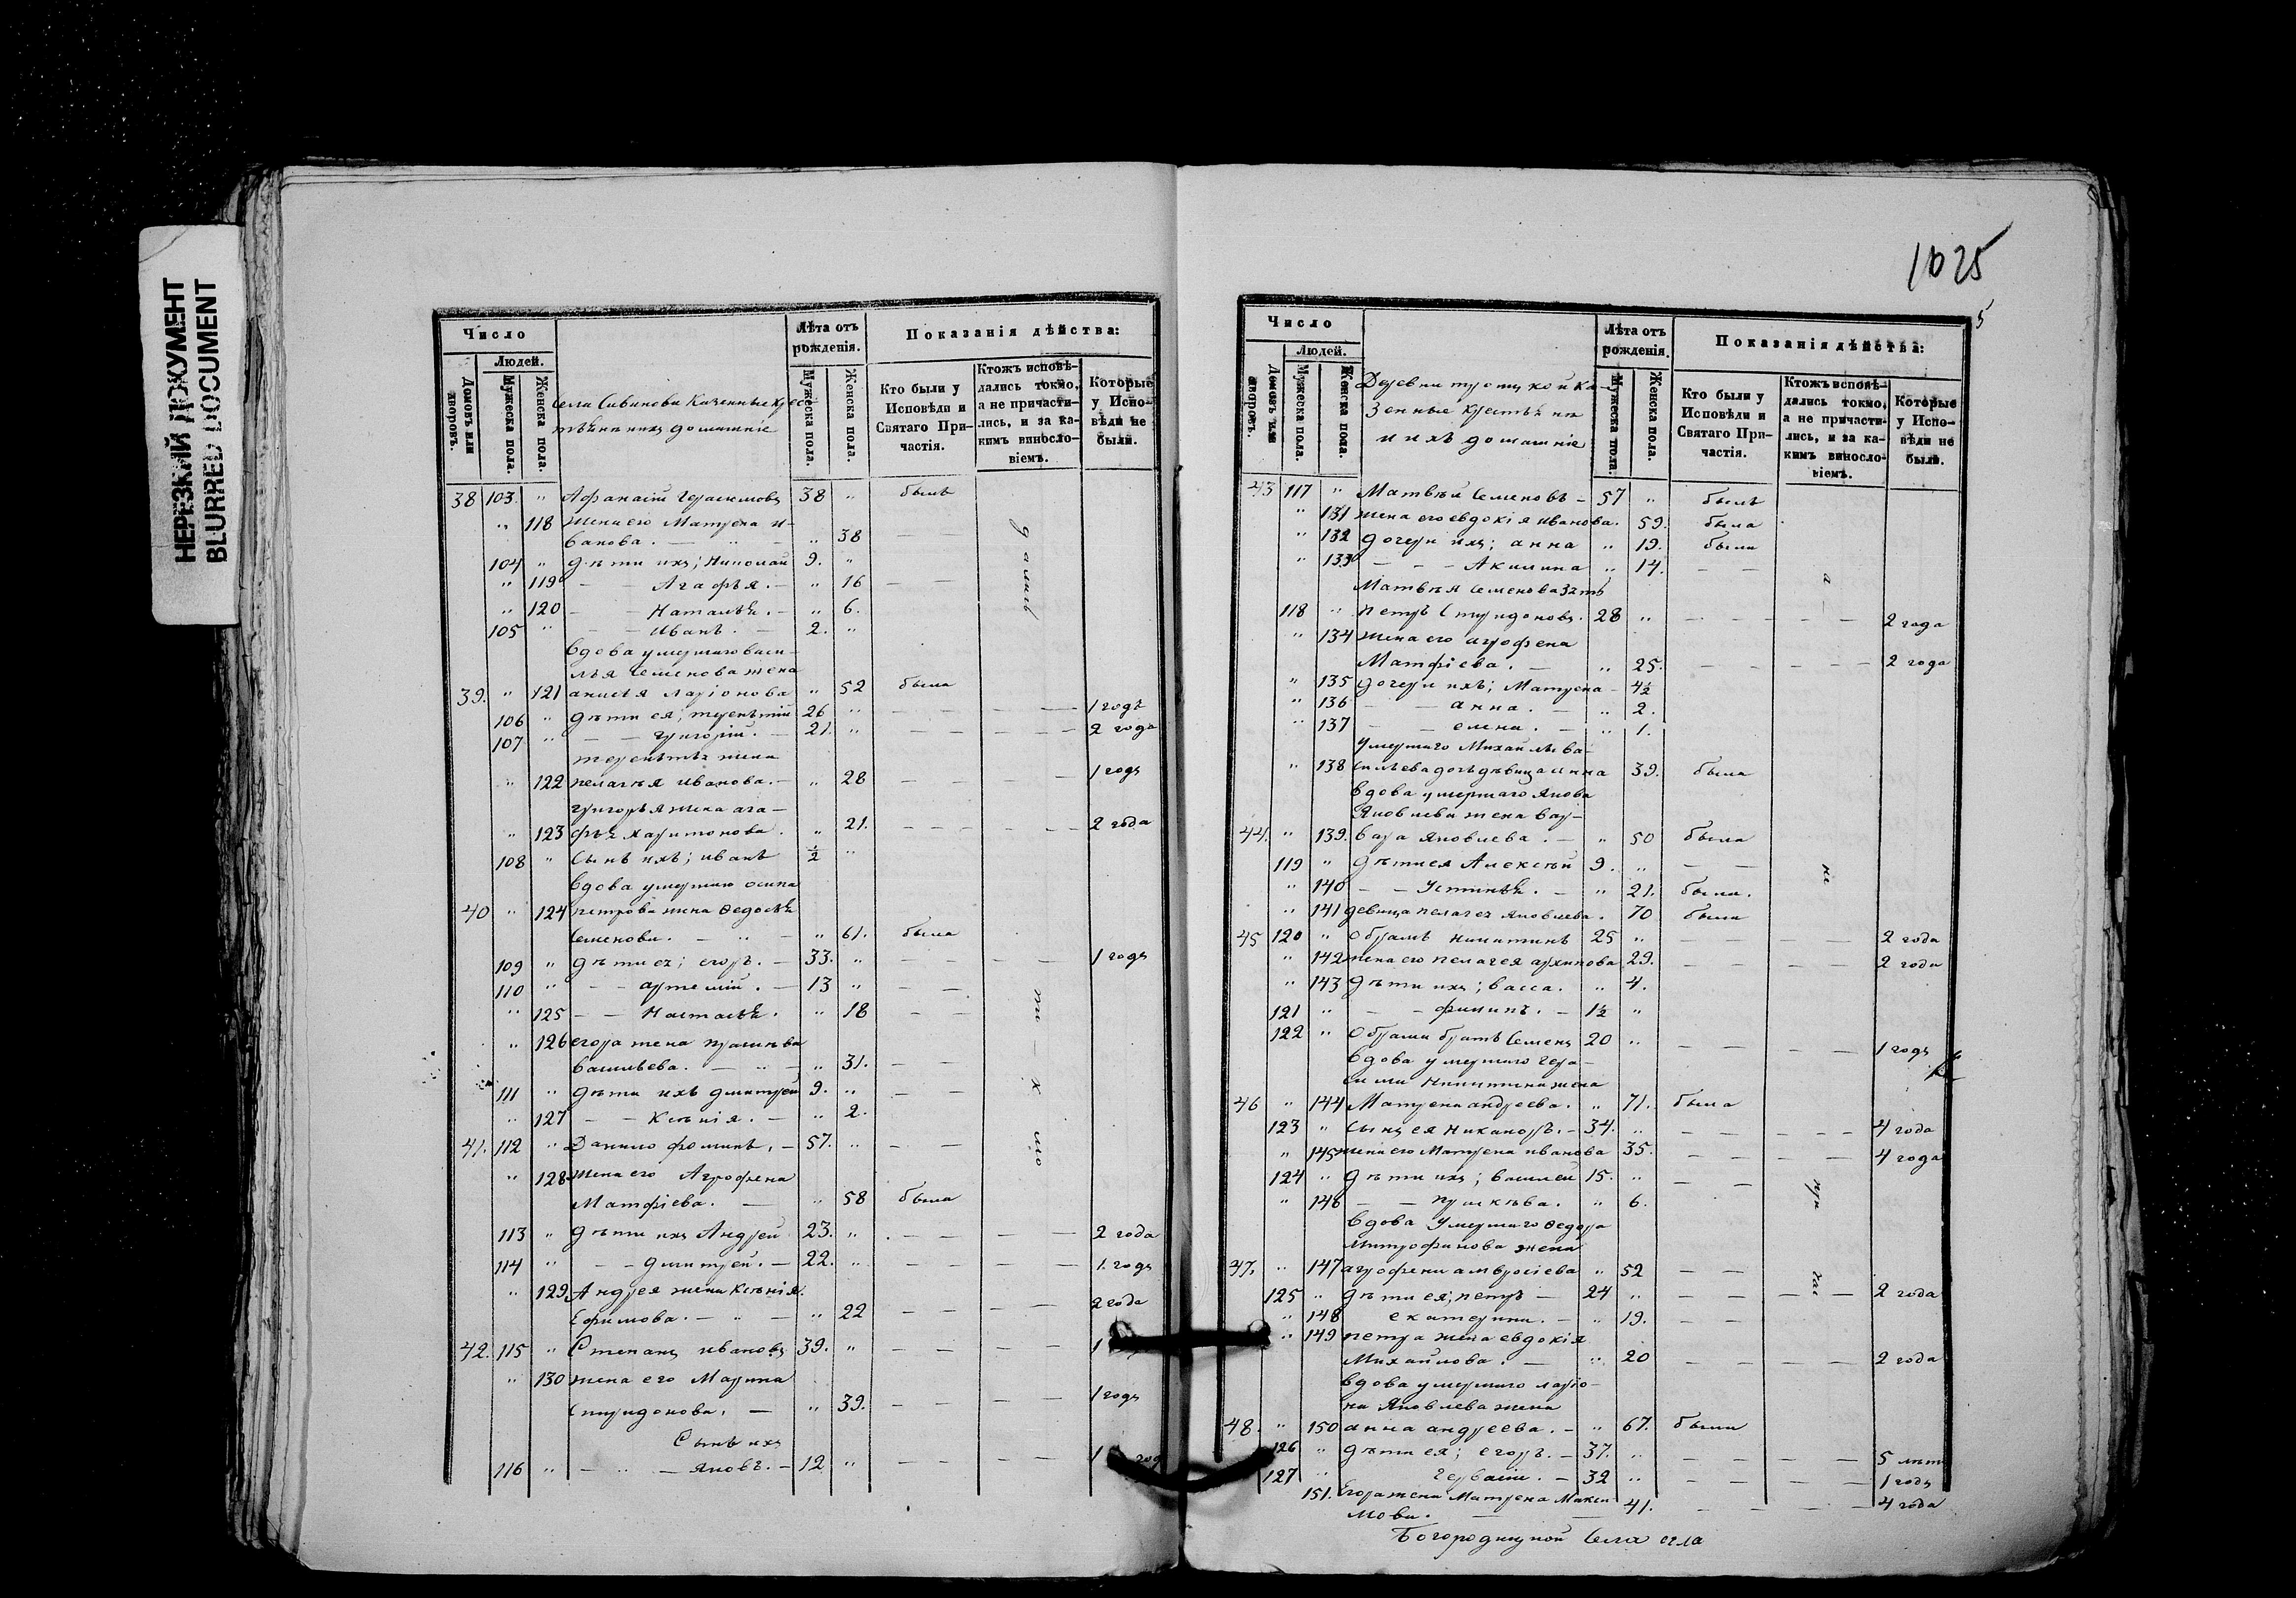 НЕРЕЗКИЙ ДОКУМЕНТ
BLURRED DOCUMENT
Число
Людей.
Домовъ или дворовъ.
Мужеска пола.
Женска пола.
села Савинова Казенные крес
тьяни ихъ домашніе
Лѣта отъ рожденія.
Мужеска пола.
Женска пола.
Показанія дѣйства:
Кто были у Исповѣди и Святаго Причастія.
Ктожъ исповѣ-
дались токмо,
а не причасти-
лись, и за ка-
кимъ винносло-
віемъ.
Которые
у Испо-
вѣди не
были.
38 103. " Афанасій Герасимовъ 38 " былъ
" 118 жена его Матрена и-
ванова. — " — " 38 — —
104 " дѣти ихъ; Николай 9. "
" 119 — Агафья. — " 16 — —
" 120 — — Наталья. — " 6.
105 " — — иванъ. — 2. "
вдова умершаго васи-
лья Семенова жена
39. " 121 анисья ларіонова " 52 была
106 " дѣти ея; терентій 26 " — — — — 1 годъ
107 " — — григорій. — 21. " — — — — 2 года
терентья жена
" 122 пелагея иванова. — " 28 — — — — 1 годъ
григорья жена ага-
" 123 фья харитонова. " 21. — — — — 2 года
108 " Сынъ ихъ; иванъ ½ "
вдова умершаго осипа
40 " 124 петрова жена Ѳедосья
Семенова. — " — " 61. была
109 " дѣти ея; егоръ. — 33. " — — — — 1 годъ
110 " — — артемій. — 13 " — —
" 125 — — Настасья. " 18 — —
" 126 егора жена прасковья
васильева. — " — " 31. — —
111 " дѣти ихъ дмитрей 9. " — —
" 127 — — Ксенія. — " 2.
41. 112 " Данило фоминъ. — 57. " — —
" 128 жена его Агрофена
Матфіева. — " 58 была
113 " дѣти ихъ Андрей 23. " — — — — 2 года
114 " — — дмитрей. — 22. " — — — — 1 годъ
" 129 Андрея жена Ксенія
Ефимова. — " — " 22 — — — — 2 года
42. 115 " Степанъ ивановъ 39. " — — — — 1
" 130 жена его Марина
Спиридонова. — " 39. — — — — 1 годъ
Сынъ ихъ
116 " — " — яковъ. — 12 " — — — — 1 год
1025
5
Число
Людей.
Домовъ или дворовъ.
Мужеска пола.
Женска пола.
Деревни троицкой Ка-
зенные Крестьян
и ихъ домашніе
Лѣта отъ рожденія.
Мужеска пола.
Женска пола.
Показанія дѣйства:
Кто были у Исповѣди и Святаго Причастія.
Ктожъ исповѣ-
дались токмо,
а не причасти-
лись, и за ка-
кимъ винносло-
віемъ.
Которые
у Испо-
вѣди не
были.
43 117 " Матвѣй Семеновъ — 57 " былъ
" 131 жена его евдокія иванова. 59. была
" 132 дочери ихъ; анна " 19. была
" 133 — — — Акилина " 14. — —
Матвѣя Семенова зять
118 " петръ Спиридоновъ. 28 " — — — — 2 года
" 134 жена его агрофена
Матфіева. — " 25. — — — — 2 года
" 135 дочери ихъ; Матрена — 4½
" 136 — — анна. — " 2.
" 137 — елена. — " 1.
умершаго Михайлы ва-
" 138 сильева дочь дѣвица анна 39. была
вдова умершаго якова
Яковлева жена вар-
44. " 139. вара яковлева. — " 50 была
119 " дѣти ея Алексѣй 9. " — —
" 140 — — Устинья. — " 21. была.
" 141 девица пелагея яковлева. 70 была
45 120 " Обрамъ никитинъ 25 " — — — — 2 года
" 142 жена его пелагея архипова 29. — — — — 2 года
" 143 дѣти ихъ; васса. " 4.
121 " — — филипъ. — 1½ "
122 " Обрама братъ Семенъ 20 " — — — — 1 годъ
вдова умершаго гера-
сима никитина жена
46 " 144 Матрена андреева. " 71. была
123 " сынъ ея никаноръ. — 34. " — — — — 4 года
" 145 жена его Матрена иванова 35. — — — — 4 года
124 " дѣти ихъ; василей 15. " — —
" 146 — — — " 6.
вдова умершаго Ѳедора
митрофанова жена
47. " 147 агрофена амвросіева " 52 — —
125 " дѣти ея; петръ — 24 " — — — — 2 года
" 148 екатерина. — " 19. — —
" 149 петра жена евдокія
Михайлова. — " 20 — — — — 2 года
вдова умершаго ларіо-
на Яковлева жена
48. " 150 анна андреева. — " 67. была
126 " дѣти ея; егоръ. — 37. " — — — — 5 лѣт
127 " гервасій. — 32 " — — — — 1 годъ
151. Егора жена Матрена Макси
мова. — — 41. — — — — 4 года
Богородицкой села